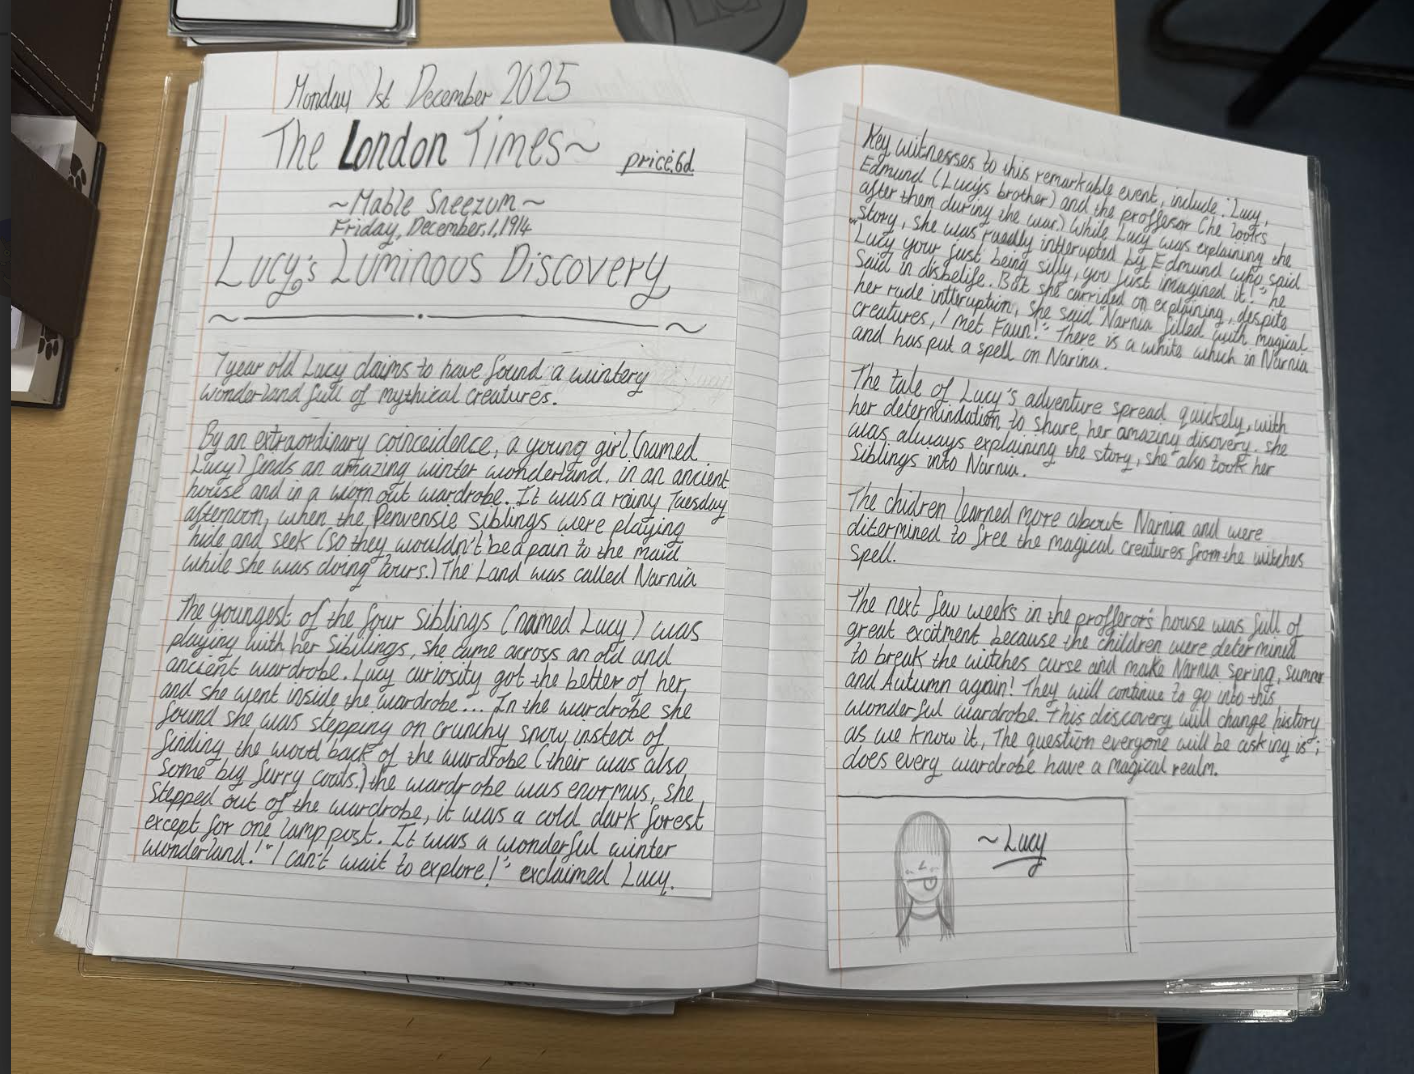 Monday 1st December 2025
The London Times~
price:6d
~Mable Sneezum~
Friday, December, 1, 1914
Lucy's Luminous Discovery
7 year old Lucy claims to have found a wintery
wonderland full of mythical creatures.
By an extraordinary coinceidence, a young girl (named
Lucy) finds an amazing winter wonderland, in an ancient
house and in a worn out wardrobe. It was a rainy Tuesday
afternoon, when the Penvensie Siblings were playing
hide and seek (so they wouldn't be a pain to the maid
while she was doing tours.) The Land was called Narnia
The youngest of the four Siblings (named Lucy) was
playing with her Sibilings, she came across an old and
ancient wardrobe. Lucy curiosity got the better of her,
and she went inside the wardrobe... In the wardrobe she
found she was stepping on crunchy snow insted of
finding the wood back of the wardrobe (their was also
some big furry coats.) the wardrobe was enormus, she
stepped out of the wardrobe, it was a cold dark forest
except for one lamp post. It was a wonderful winter
wonderland! "I can't wait to explore!" exclaimed Lucy.
Key witnesses to this remarkable event, include: Lucy,
Edmund (Lucy's brother) and the proffesor (he looks
after them during the war.) While Lucy was explaining the
story, she was ruedly interupted by Edmund who said
"Lucy your just being silly, you just imagined it!" he
said in disbelife. But she carrided on explaining, despite
her rude intteruption, she said "Narnia filled with magical
creatures, I met Faun!" There is a white which in Narnia
and has put a spell on Narina.
The tale of Lucy's adventure spread quickely, with
her determindation to share her amazing disovery. she
was always explaining the story, she also took her
Siblings into Narnia.
The chidren learned more about Narnia and were
ditermined to free the magical creatures from the witches
spell.
The next few weeks in the profferor's house was full of
great excitment because the children were determined
to break the witches curse and make Narnia Spring, summer
and Autumn again! They will continue to go into this
wonderful wardrobe. This discovery will change history
as we know it, The question everyone will be asking is;
does every wardrobe have a magical realm.
~Lucy